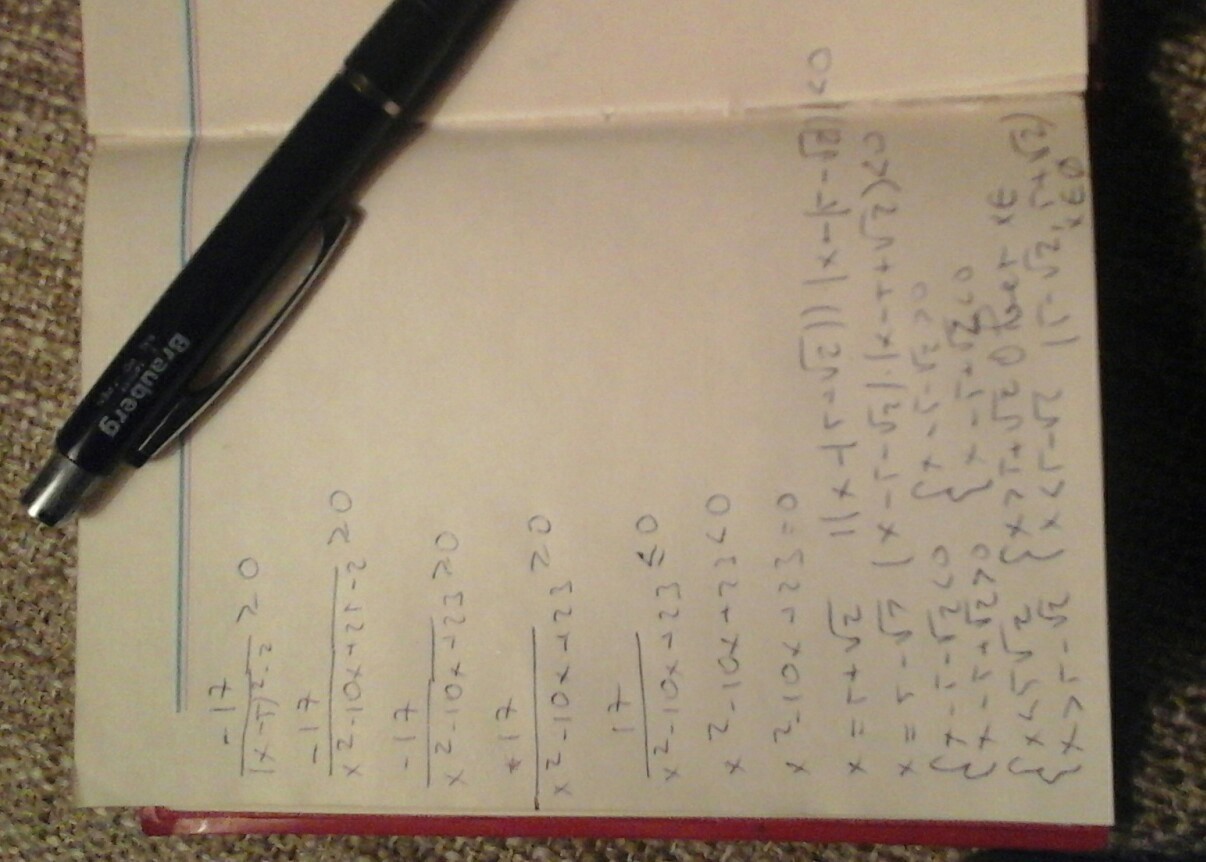 -17
(x-5)²-2 ≥0
-17
x²-10x+25-2 ≥0
-17
x²-10x+23 ≥0
17
x²-10x+23 ≥0
17
x²-10x+23 ≤0
x²-10x+23<0
x²-10x+23=0
x=5+√2 ((x-(5+√2))(x-(5-√2))<0
x=5-√2 (x-5-√2)·(x-5+√2)<0
{x-5-√2<0 {x-5-√2>0
{x-5+√2>0 {x-5+√2<0
{x<5√2 {x>5+√2 Ответ x∈
{x>5-√2 {x<5-√2 (5-√2, 5+√2)
x∈∅
Brauberg